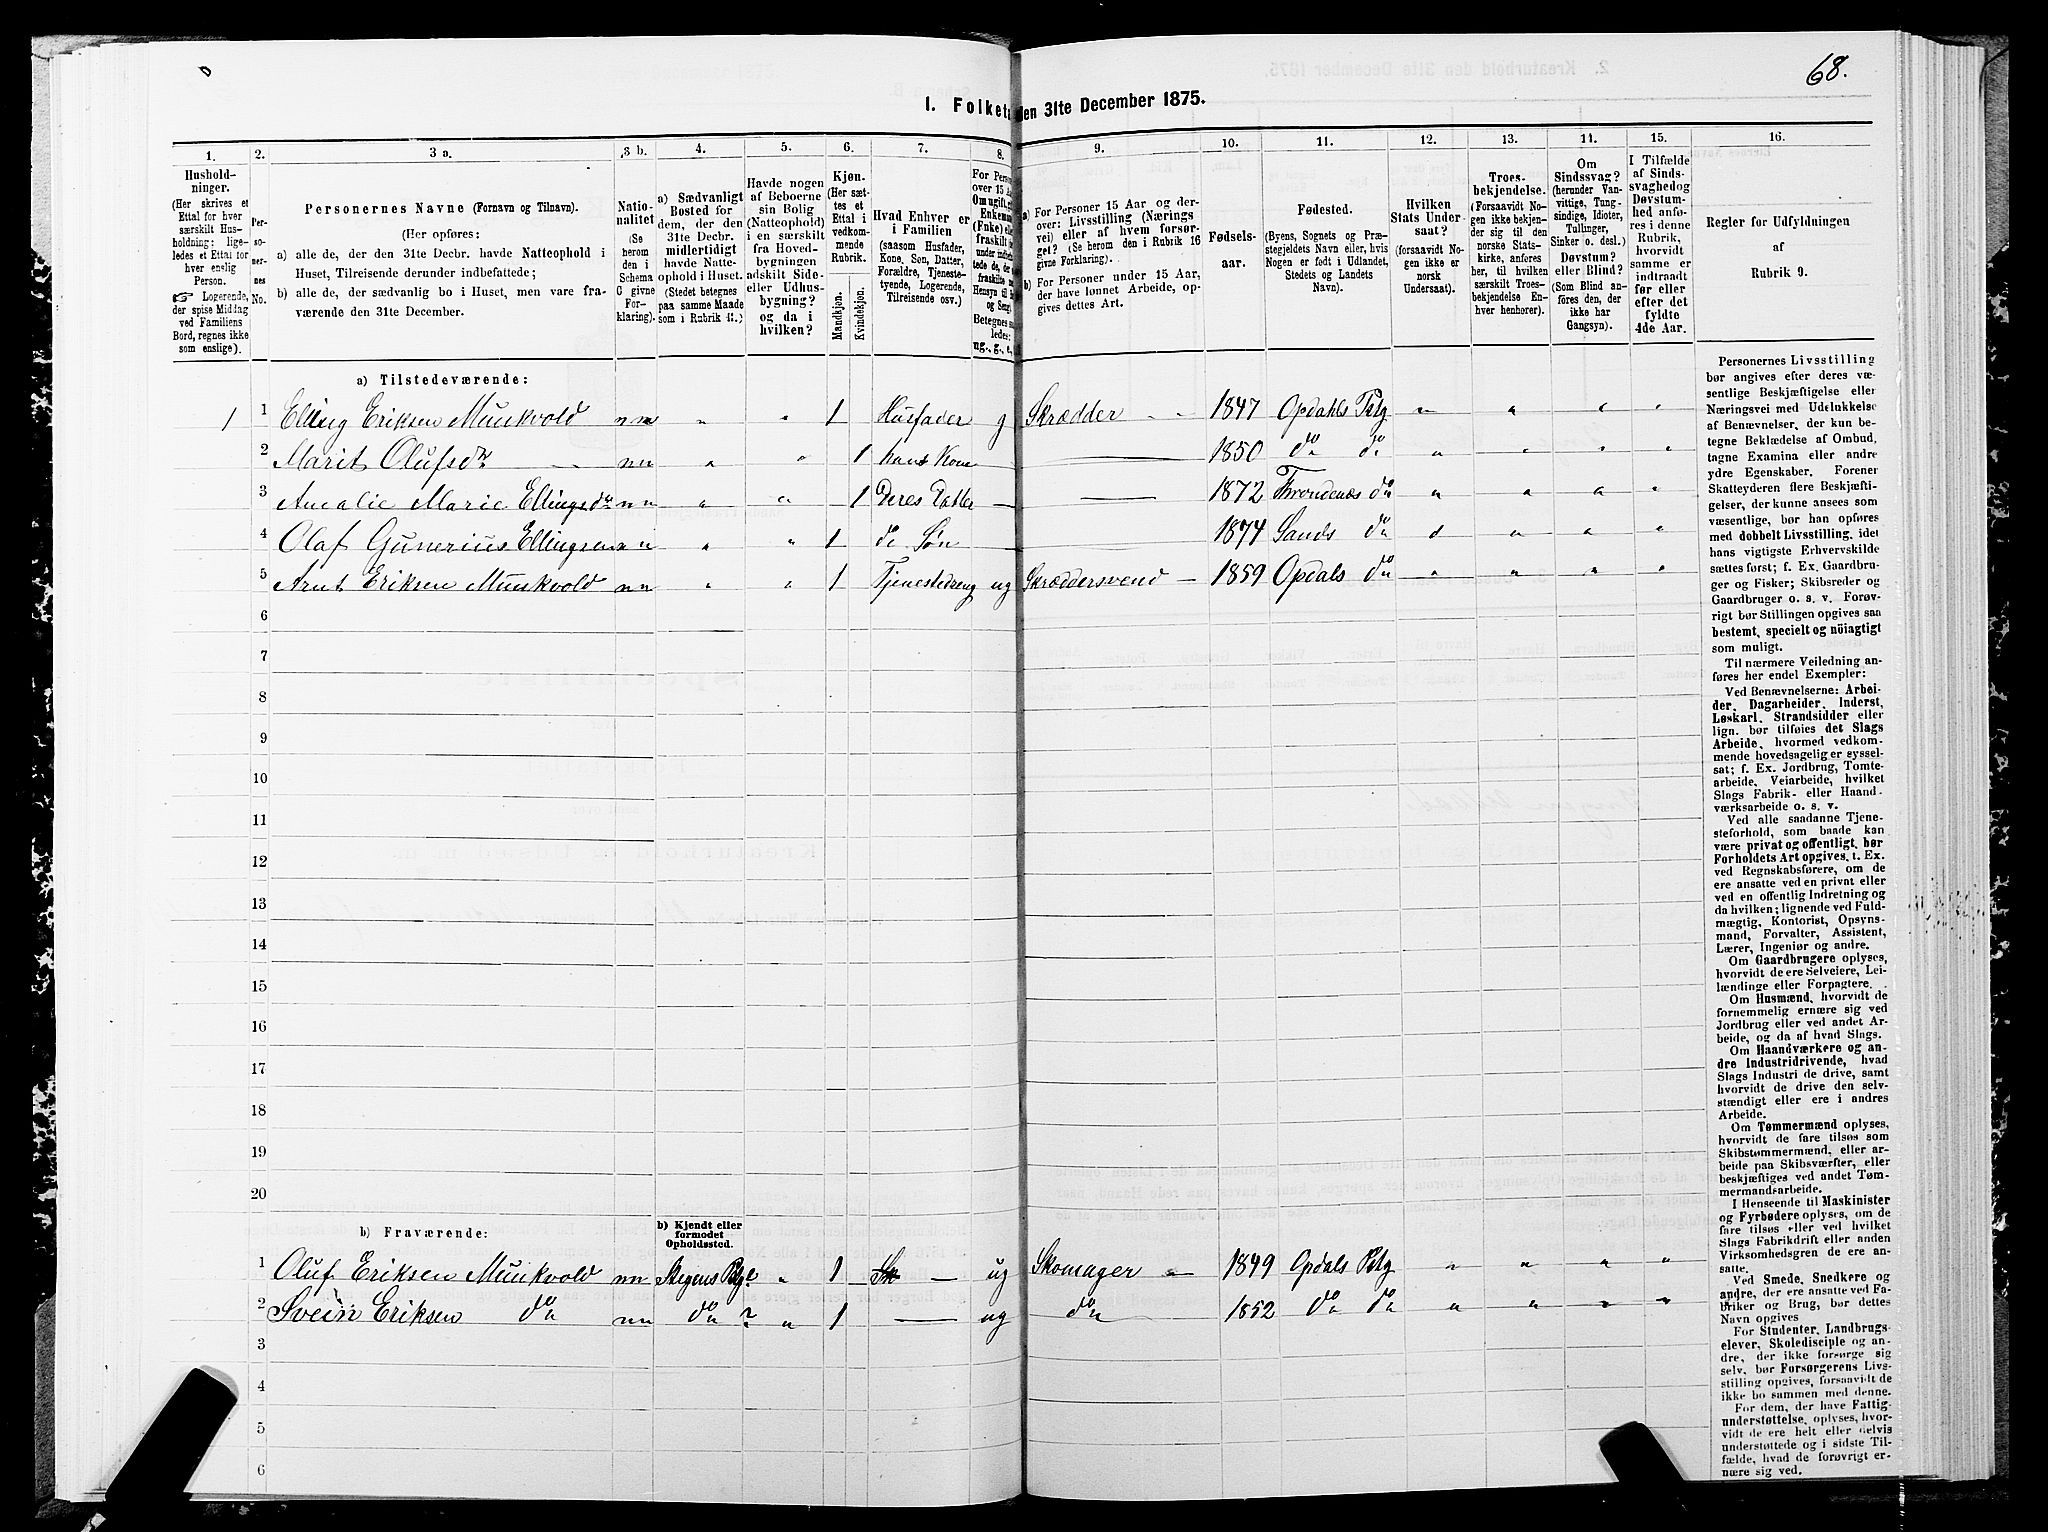 68.
1. Folketæ
den 31te December 1875.
1.
2.
3 a.
3 b.
4.
5.
6.
7.
8.
9.
10.
11.
12.
13.
14.
15.
16.
Hushold-
ninger.
(Her skrives et
Ettal for hver
særskilt Hus-
holdning: lige-
ledes et Ettal for
hver enslig
Person.
☞ Logerende,
der spise Middag
ved Familiens
Bord, regnes ikke
som enslige).
Per-
so-
ner-
nes
No.
Personernes Navne (Fornavn og Tilnavn).
(Her opføres:
a) alle de, der den 31te Decbr. havde Natteophold i
Huset, Tilreisende derunder indbefattede;
b) alle de, der sædvanlig bo i Huset, men vare fra-
værende den 31te December.
Natio-
nalitet
(Se
herom
den i
Schema
G givne
For-
klaring).
a) Sædvanligt
Bosted for
dem, der den
31te Decbr.
midlertidigt
havde Natte-
ophold i Huset.
(Stedet betegnes
paa samme Maade
som i Rubrik 11.)
Havde nogen
af Beboerne
sin Bolig
(Natteophold)
i en særskilt
fra Hoved-
bygningen
adskilt Side-
eller Udhus-
bygning?
og da i
hvilken?
Kjøn.
(Her sæt-
tes et
Ettal i
vedkom-
mende
Rubrik.
Mandkjøn.
Kvindekjøn.
Hvad Enhver er
i Familien
(saasom Husfader,
Kone, Søn, Datter,
Forældre, Tjeneste-
tyende, Logerende,
Tilreisende osv.)
For Person
over 15 Aa
Om ugift, g
Enkeman
(Fnke) elle
fraskilt
Betegnes sa
ledes:
ug., g., t.,
a) For Personer 15 Aar og der-
over: Livsstilling (Nærings
vei) eller af hvem forsør-
get? (Se herom den i Rubrik 16
givne Forklaring).
b) For Personer under 15 Aar,
der have lønnet Arbeide, op-
gives dettes Art.
Fødsels-
aar.
Fødested.
(Byens, Sognets og Præ-
stegjeldets Navn eller, hvis
Nogen er født i Udlandet,
Stedets og Landets
Navn).
Hvilken
Stats Under-
saat?
(forsaavidt No-
gen ikke er
norsk
Undersaat).
Troes-
bekjendelse.
(Forsaavidt No-
gen ikke bekjen-
der sig til den
norske Stats-
kirke, anføres
her, til hvilken
særskilt Troes-
bekjendelse En-
hver henhører).
Om
Sindssvag?
(herunder Van-
vittige, Tung-
sindige, Idioter,
Tullinger,
Sinker o. desl.)
Døvstum?
eller Blind?
(Som Blind an-
føres den, der
ikke har
Gangsyn).
I Tilfælde
af Sinds-
svaghedog
Døvstum-
hed anfø-
res i denne
Rubrik,
hvorvidt
samme er
indtraadt
før eller
efter det
fyldte
4de Aar.
Regler for Udfyldningen
af
Rubrik 9.
a) Tilstedeværende:
1 1 Elling Eriksen Munkvold nn " " 1 Husfader g Skrædder " " 1847 Opdahls Pstg " " " "
2 Marit Olufsdr nn " " 1 hans Kone — 1850 do do " " " "
3 Amalie Marie Ellingsdr nn " " 1 Deres Datter — 1872 Trondenæs do " " " "
4 Olaf Gunerius Ellingsen n " " 1 do Søn 1874 Sands do " " " "
5 Arnt Eriksen Munkvold nn " " 1 Tjenestedreng ug Skræddersvend — 1859 Opdals do " " " "
6
7
8
9
10
11
12
13
14
15
16
17
18
19
20
b) Fraværende:
b) Kjendt eller
formodet
Opholdssted.
1 Oluf Eriksen Munkvold nn Stegens Pstg? " 1 Sk — ug Skomager " 1849 Opdals Pstg " " " "
2 Svein Eriksen do nn do ? " 1 — ug do 1852 do do " " " "
3
4
5
6
Personernes Livsstilling
bør angives efter deres væ-
sentlige Beskjæftigelse eller
Næringsvei med Udelukkelse
af Benævnelser, der kun be-
tegne Beklædelse af Ombud,
tagne Examina eller andre
ydre Egenskaber. Forener
Skatteyderen flere Beskjæfti-
gelser, der kunne ansees som
væsentlige, bør han opføres
med dobbelt Livsstilling, idet
hans vigtigste Erhvervskilde
sættes først; f. Ex. Gaardbru-
ger og Fisker; Skibsreder og
Gaardbruger o. s. v. Forøv-
rigt bør Stillingen opgives saa
bestemt, specielt og nöiagtigt
som muligt.
Til nærmere Veiledning an-
føres her endel Exempler:
Ved Benævnelserne: Arbei-
der, Dagarbeider, Inderst,
Løskarl, Strandsidder eller
lign. bør tilføies det Slags
Arbeide, hvormed vedkom-
mende hovedsagelig er syssel-
sat; f. Ex. Jordbrug, Tomte-
arbeide, Veiarbeide, hvilket
Slags Fabrik- eller Haand-
værksarbeide o. s. v.
Ved alle saadanne Tjene-
steforhold, som baade kan
være privat og offentligt, bør
Forholdets Art opgives, t. Ex.
ved Regnskabsførere, om de
ere ansatte ved en privat eller
ved en offentlig Indretning og
da hvilken; lignende ved Fuld-
mægtig, Kontorist, Opsyns-
mand, Forvalter, Assistent,
Lærer, Ingeniør og andre.
Om Gaardbrugere oplyses,
hvorvidt de ere Selveiere, Lei-
lændinge eller Forpagtere.
Om Husmænd, hvorvidt de
fornemmelig ernære sig ved
Jordbrug eller ved andet Ar-
beide, og da af hvad Slags.
Om Haandværkere og an-
dre Industridrivende, hvad
Slags Industri de drive, samt
hvorvidt de drive den selv-
stændigt eller ere i andres
Arbeide.
Om Tømmermænd oplyses,
hvorvidt de fare tilsøs som
Skibstømmermænd, eller ar-
beide paa Skibsværfter, eller
beskjæftiges ved andet Tøm-
mermandsarbeide.
I Henseende til Maskinister
og Fyrbødere oplyses, om de
fare tilsøs eller ved hvilket
Slags Fabrikdrift eller anden
Virksomhedsgren de ere an-
satte.
Ved Smede, Snedkere og
andre, der ere ansatte ved Fa-
briker og Brug, bør dettes
Navn opgives
For Studenter, Landbrugs-
elever, Skoledisciple og an-
dre, der ikke forsørge sig
selv, bør Forsørgerens Livs-
stilling opgives, forsaavidt de
ikke bo sammen med denne.
For dem, der have Fattig-
understøttelse, oplyses, hvor-
vidt de ere helt eller delvis
understøttede og i sidste Til-
fælde, hvad de forøvrigt er-
nære sig ved.